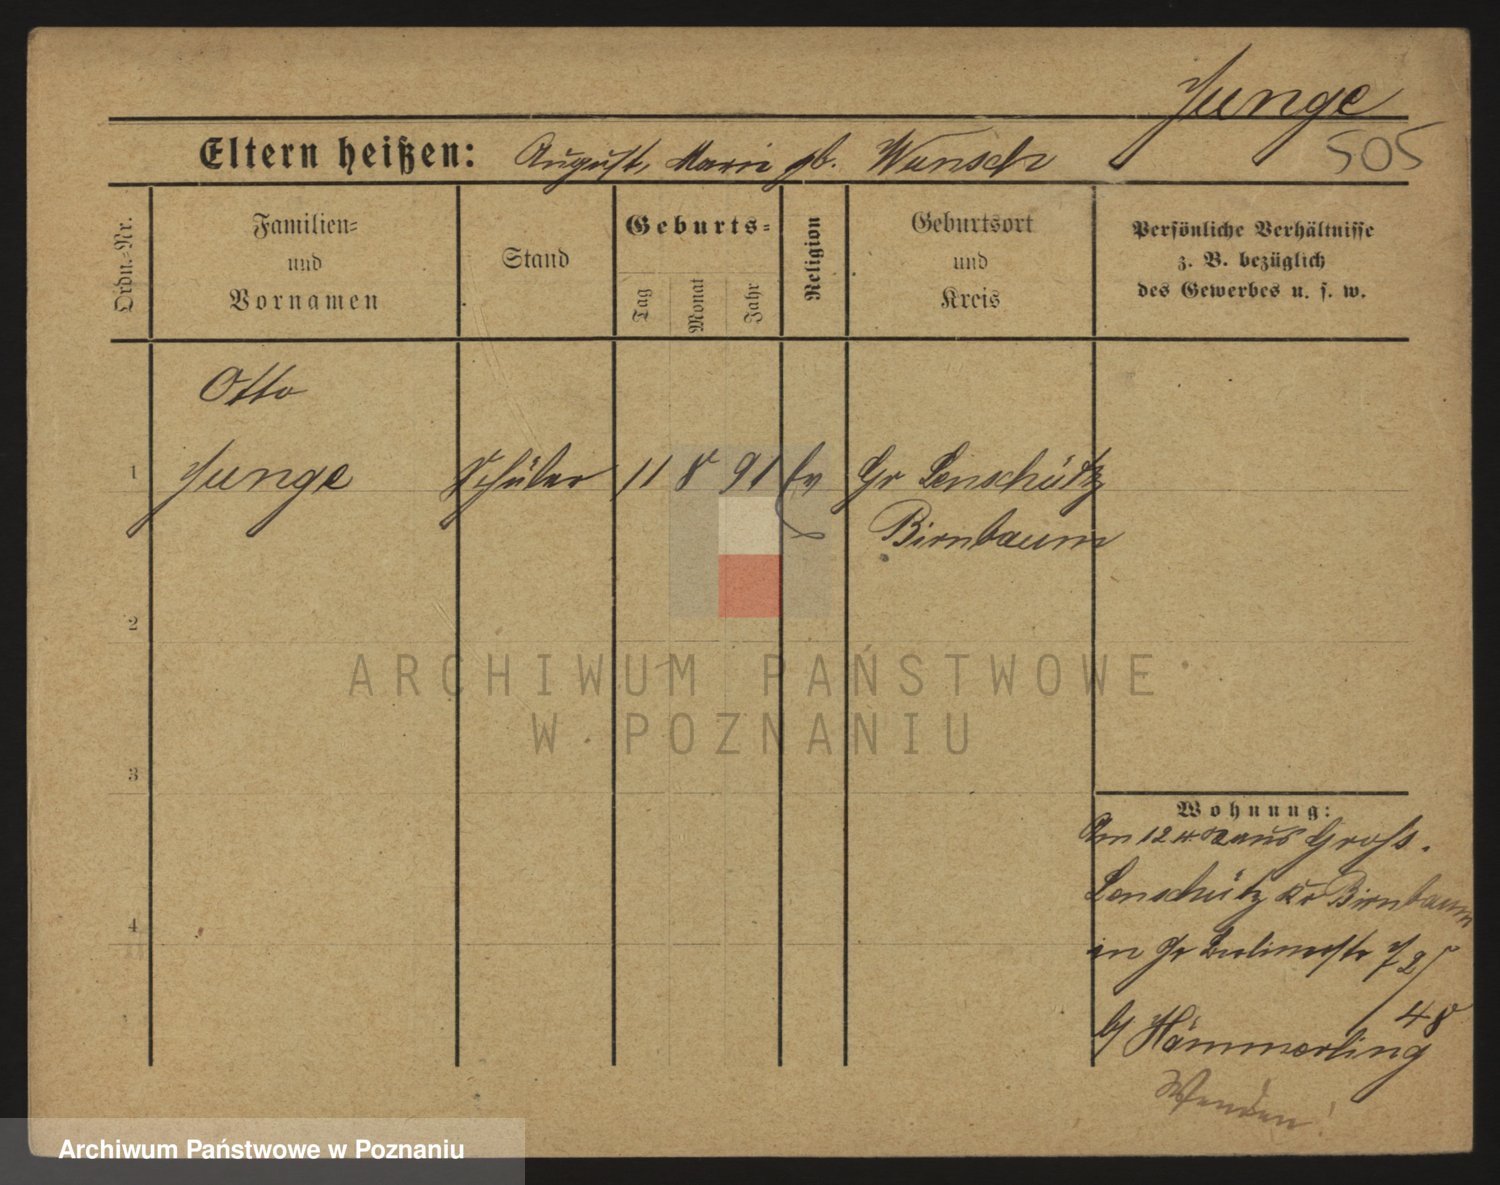 Junge
505
Eltern heißen: August, Marie gb. Wunsch
Ordn.-Nr.
Familien-
und
Vornamen
Stand
Geburts-
Tag
Monat
Jahr
Religion
Geburtsort
und
Kreis
Persönliche Verhältnisse
z. B. bezüglich
des Gewerbes u. s. w.
Otto
1 Junge Schüler 11 8 91 Ev Gr Lenschütz
Birnbaum
2
3
4
ARCHIWUM PAŃSTWOWE
W POZNANIU
Wohnung:
Am 12 4 aus Groß.
Lenschütz Kr Birnbaum
in Gr
b/ Hämmerling 48
Wenden!
Archiwum Państwowe w Poznaniu